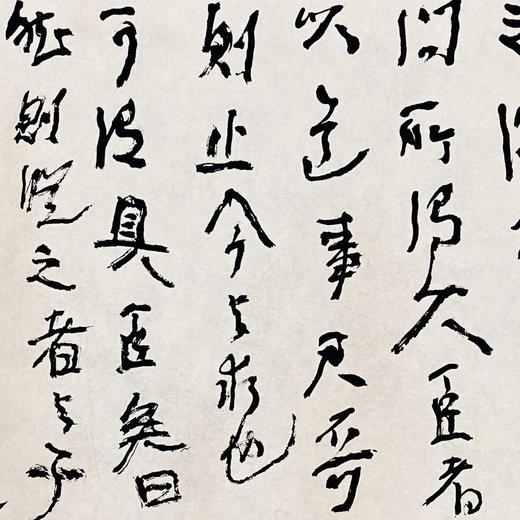 問所謂大臣者
以道事君不可
則止今与求也
可謂具臣矣曰
然則從之者与子